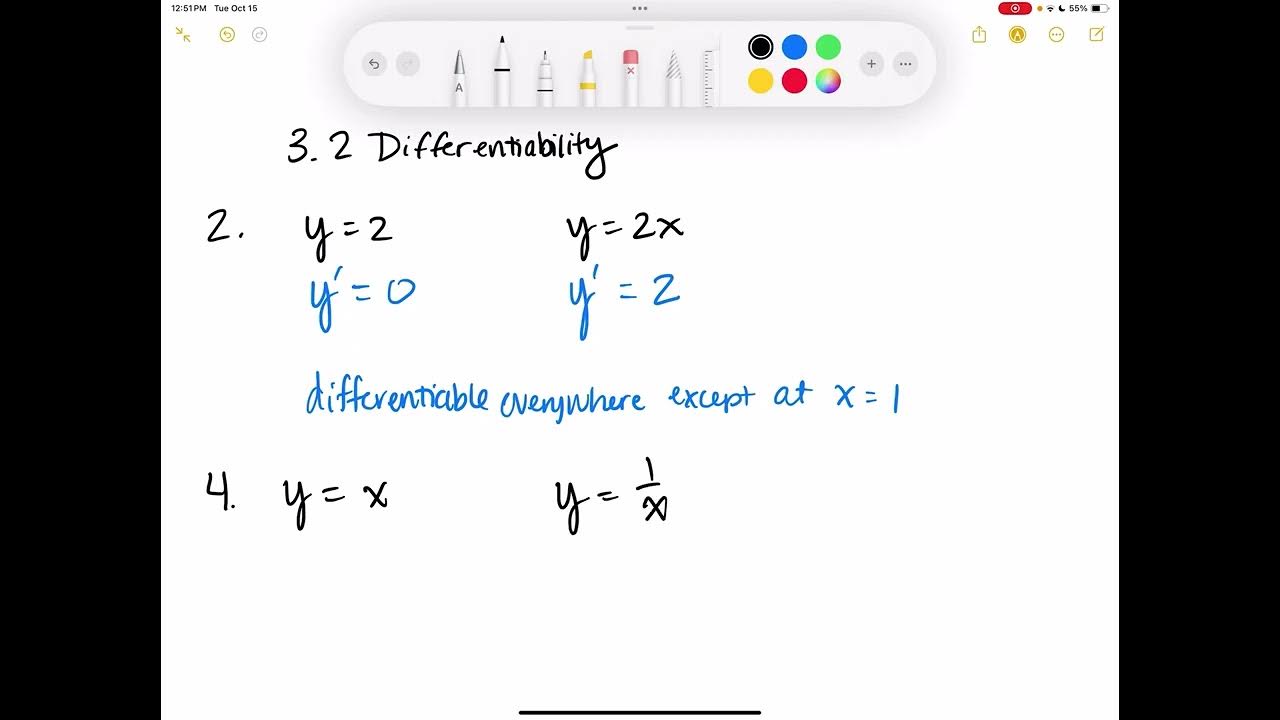 12:51PM Tue Oct 15
55%
A
3.2 Differentiability
2. y = 2 y = 2x
y' = 0 y' = 2
differentiable everywhere except at x = 1
4. y = x y = 1/x